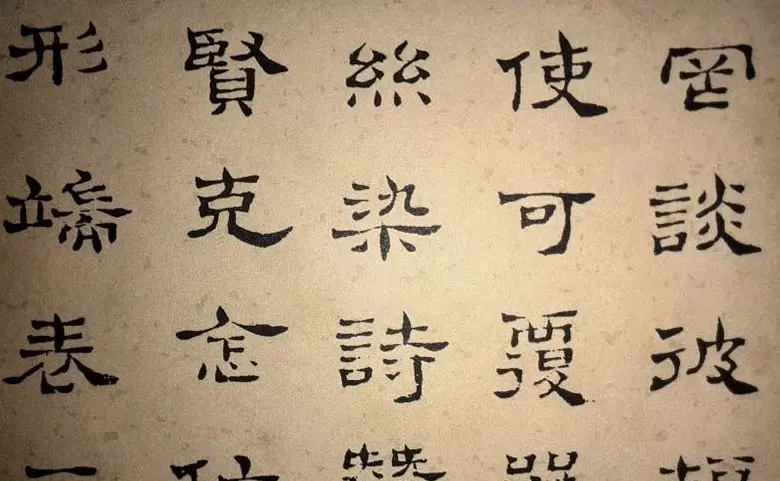 罔談彼
使可覆
絲染詩
賢克念
形端表